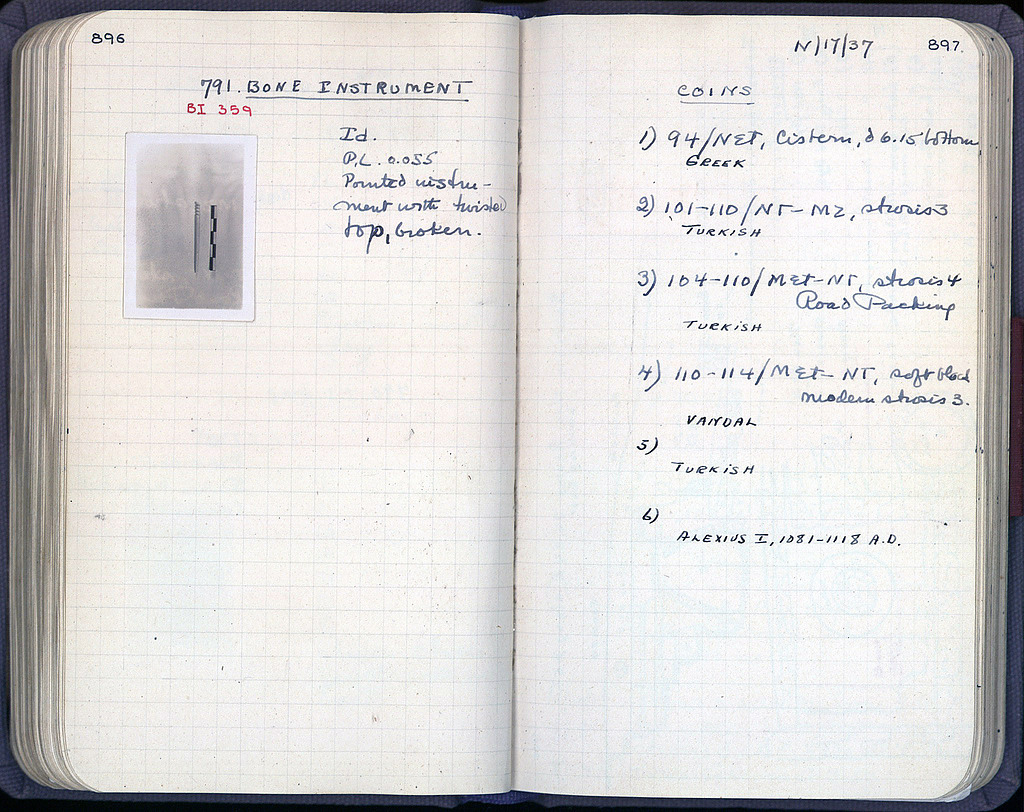 896
791. BONE INSTRUMENT
BI 359
Id.
P.L. 0.055
Pointed instru-
ment with twisted
top, broken.
897.
COINS
1) 94/NET, Cistern, d 6.15 bottom
GREEK
2) 101-110/NT-MZ, strosis 3
TURKISH
3) 104-110/MET-NT, strosis 4
Road Packing
TURKISH
4) 110-114/MET-NT, soft black
modern strosis 3.
VANDAL
5)
TURKISH
6)
ALEXIUS I, 1081-1118 A.D.